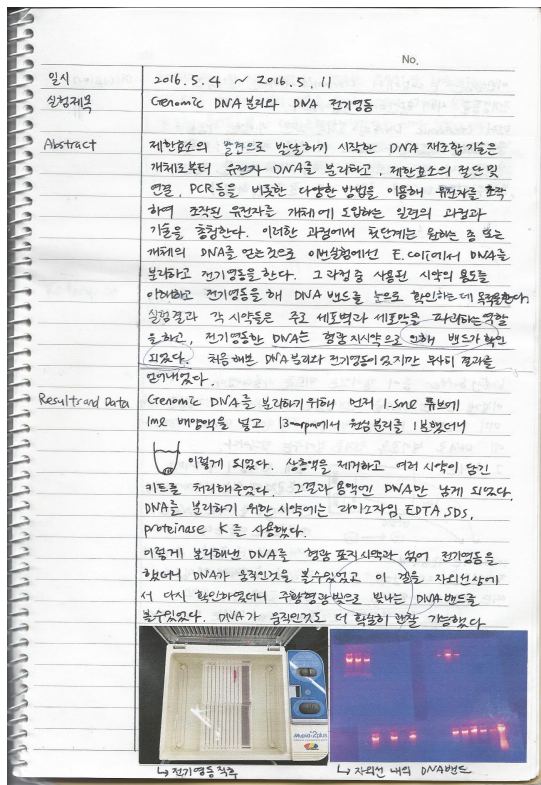 No.
일시 2016. 5. 4 ~ 2016. 5. 11
실험제목 Genomic DNA 분리와 DNA 전기영동
Abstract 제한효소의 발견으로 발달하기 시작한 DNA 재조합기술은
개체로부터 유전자 DNA를 분리하고, 제한효소의 절단 및
연결, PCR등을 비롯한 다양한 방법을 이용해 유전자를 조작
하여 조작된 유전자를 개체에 도입하는 일련의 과정과
기술을 총칭한다. 이러한 과정에서 첫단계는 원하는 종 또는
개체의 DNA를 얻는것으로 이번실험에선 E.coli에서 DNA를
분리하고 전기영동을 한다. 그 과정 중 사용된 시약의 용도를
이해하고 전기영동을 해 DNA 밴드를 눈으로 확인하는데 목적을둔다.
실험결과 각 시약들은 주로 세포벽과 세포막을 파괴하는 역할
을 하고, 전기영동한 DNA는 형광지시약으로 인해 밴드가 확인
되었다. 처음 해본 DNA분리와 전기영동이었지만 무사히 결과를
얻어내었다.
Results and Data Genomic DNA를 분리하기 위해 먼저 1.5ml 튜브에
1ml 배양액을 넣고 13000rpm에서 원심분리를 1분했더니
이렇게 되었다. 상층액을 제거하고 여러 시약이 담긴
키트를 처리해주었다. 그결과 용액엔 DNA만 남게 되었다.
DNA를 분리하기 위한 시약에는 라이소자임, EDTA, SDS,
proteinase K를 사용했다.
이렇게 분리해낸 DNA를 형광 표지시약과 섞어 전기영동을
했더니 DNA가 움직인것을 볼수있었고 이 겔을 자외선상에
서 다시 확인하였더니 주황형광빛으로 빛나는 DNA밴드를
볼수있었다. DNA가 움직인것도 더 확실히 관찰 가능했다
Mupid-2plus
↳ 전기영동 직후
↳ 자외선 내의 DNA밴드